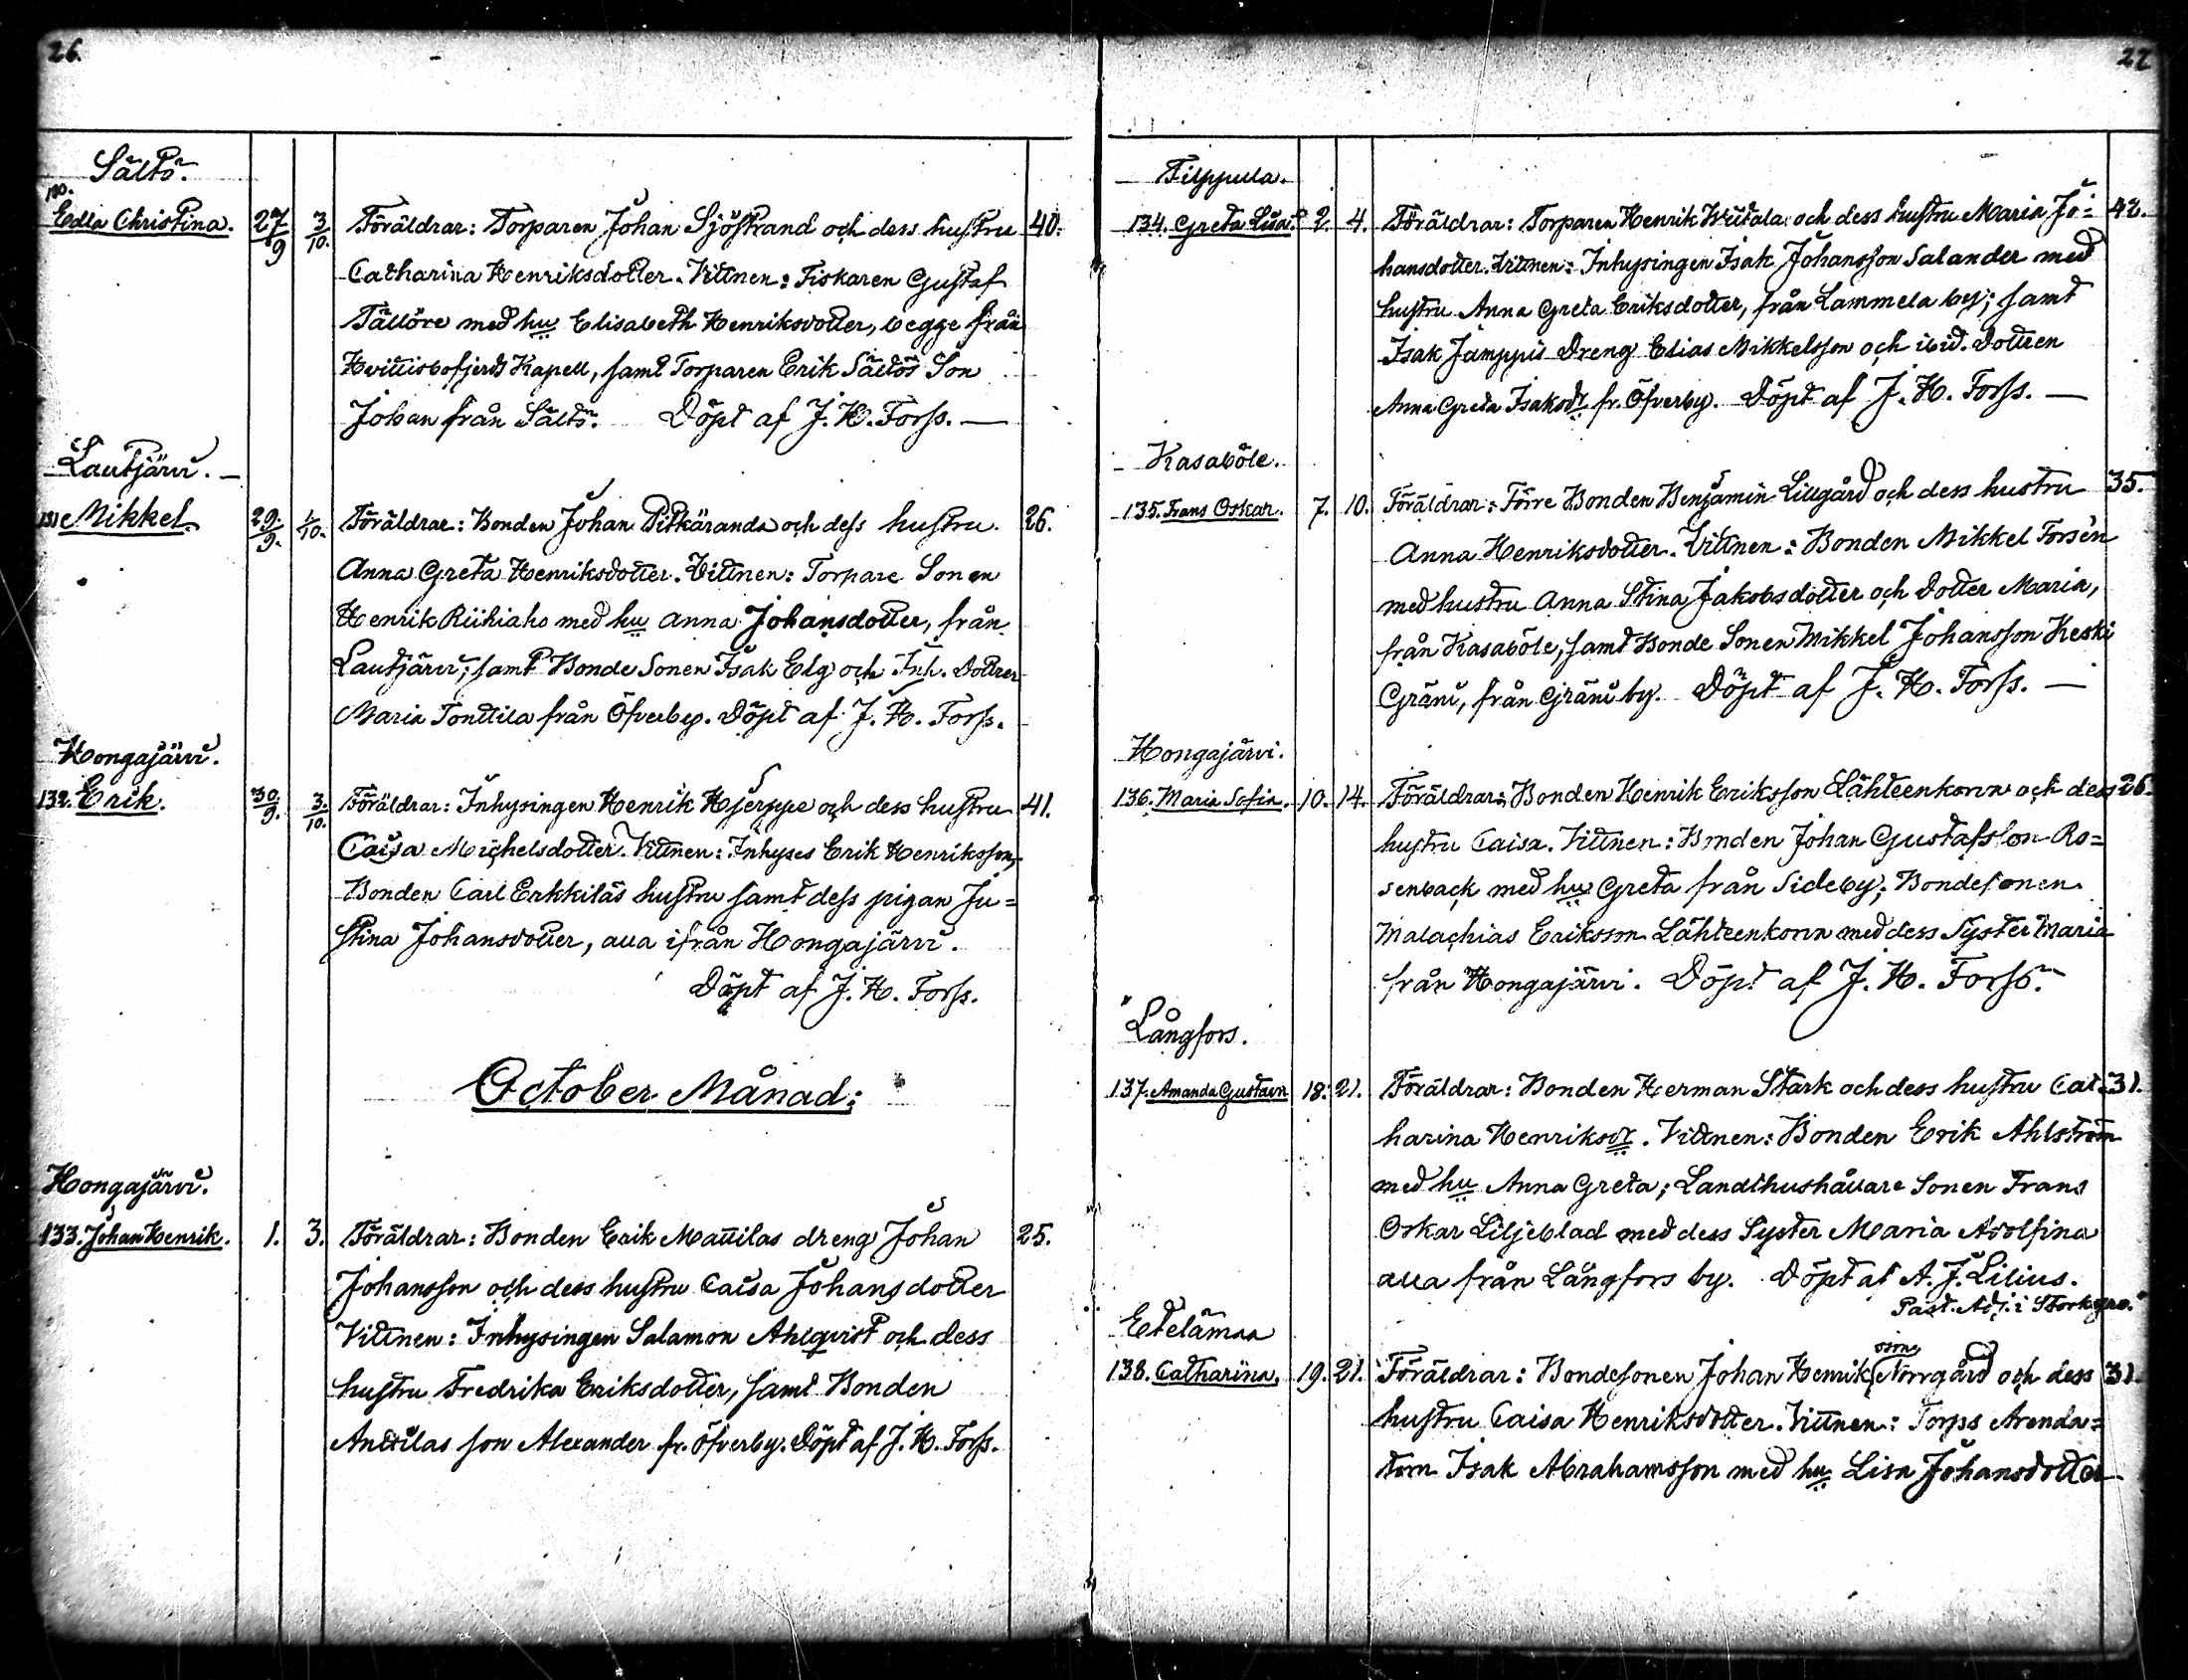 26.
Sältö.
130.
Edla Christina. 27/9 3/10. Föräldrar: Torparen Johan Sjöstrand och dess hustru 40.
Catharina Henriksdotter. Vittnen: Fiskaren Gustaf
Tällöre med hu Elisabeth Henriksdotter, begge från
Hvittisbofjerds Kapell, samt Torparen Erik Sältös Son
Johan från Sältö. Döpt af J. H. Forss. —
Lautjärvi. —
131 Mikkel. 29./9. 1/10. Föräldrar: Bonden Johan Pitkäranda och dess hustru 26.
Anna Greta Henriksdotter. Vittnen: Torpare Sonen
Henrik Riihiaho med hu Anna Johansdotter, från
Lautjärvi; samt Bonde Sonen Isak Elg och Inh. Dottren
Maria Tonttila från Öfverby. Döpt af J. H. Forss.
Hongajärvi.
132. Erik. 30/9. 3./10. Föräldrar: Inhysingen Henrik Hjerppe och dess hustru 41.
Caisa Michelsdotter. Vittnen: Inhyses Erik Henriksson,
Bonden Carl Erkkiläs hustru samt dess pigan Ju=
stina Johansdotter, alla ifrån Hongajärvi.
Döpt af J. H. Forss.
October Månad:
Hongajärvi.
133. Johan Henrik. 1. 3. Föräldrar: Bonden Erik Mattilas dreng Johan 25.
Johansson och dess hustru Caisa Johansdotter
Vittnen: Inhysingen Salamon Ahlqvist och dess
hustru Fredrika Eriksdotter, samt Bonden
Anttilas son Alexander fr. Öfverby. Döpt af J. H. Forss.
27
Filppula.
134. Greta Lisa. 2. 4. Föräldrar: Torparen Henrik Wiitala och dess hustru Maria Jo= 42.
hansdotter. Vittnen: Inhysingen Isak Johansson Salander med
hustru Anna Greta Eriksdotter, från Lammela by; samt
Isak Jamppis Dreng Elias Mikkelsson och ibid. Dottren
Anna Greta Isaksdr fr. Öfverby. Döpt af J. H. Forss. —
Kasaböle.
135. Frans Oskar. 7. 10. Föräldrar: Förre Bonden Benjamin Lillgård och dess hustru 35.
Anna Henriksdotter. Vittnen: Bonden Mikkel Forsén
med hustru Anna Stina Jakobsdotter och Dotter Maria,
från Kasaböle, samt Bonde Sonen Mikkel Johansson Keski
Gräni, från Gräni by. Döpt af J. H. Forss. —
Hongajärvi.
136. Maria Sofia. 10. 14. Föräldrar: Bonden Henrik Eriksson Lähteenkorva och dess 26.
hustru Caisa. Vittnen: Bonden Johan Gustafsson Ro=
senback med hu Greta från Sideby; Bondesonen
Malachias Eriksson Lähteenkorva med dess Syster Maria
från Hongajärvi. Döpt af J. H. Forss.
Långfors.
137. Amanda Gustava 18. 21. Föräldrar: Bonden Herman Stark och dess hustru Cat= 31.
harina Henriksdr. Vittnen: Bonden Erik Ahlström
med hu Anna Greta; Landthushållare Sonen Frans
Oskar Liljeblad med dess Syster Maria Adolfina
alla från Långfors by. Döpt af A. J. Lilius.
Past. Adj. i Storkyro.
Etelämaa
138. Catharina, 19. 21. Föräldrar: Bondesonen Johan Henrik Norrgård och dess 31.
hustru Caisa Henriksdotter. Vittnen: Torps Arenda=
torn Isak Abrahamsson med hu Lisa Johansdotter